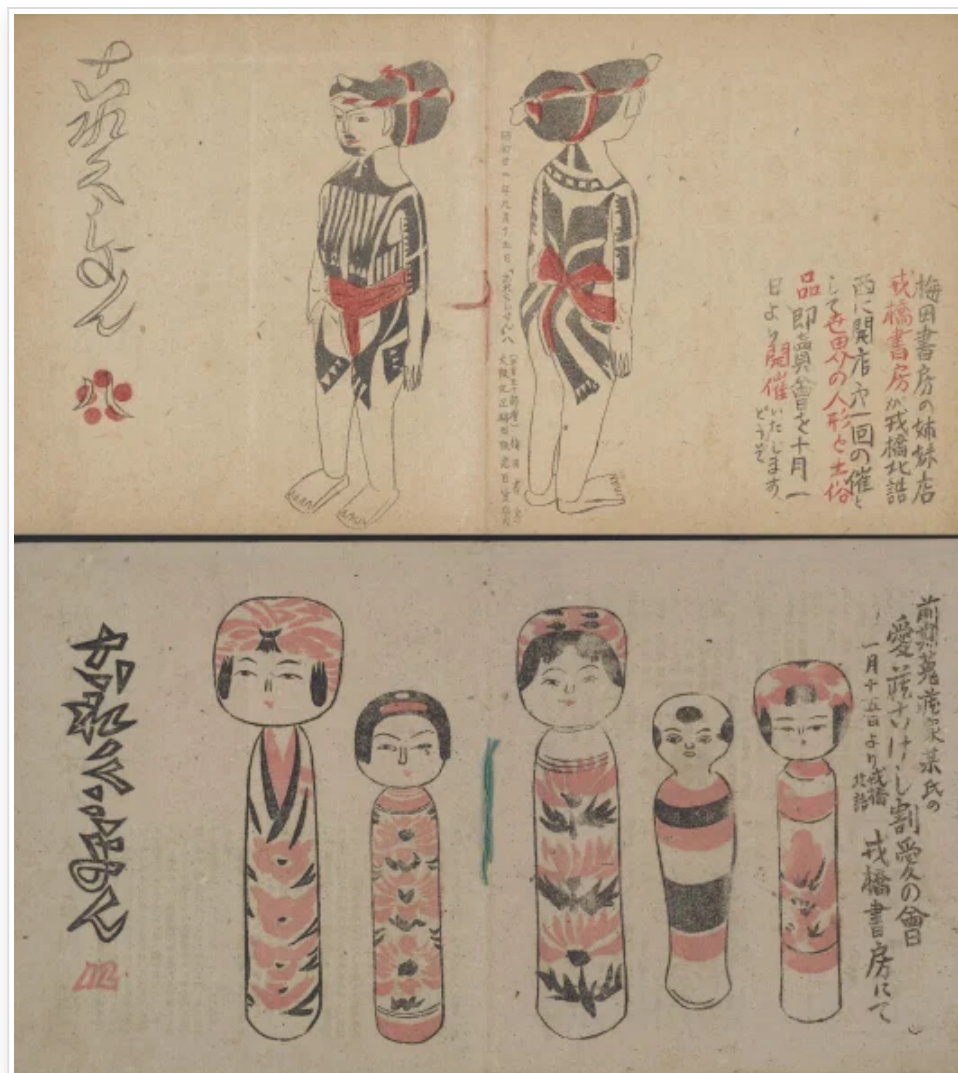 梅田書房の姉妹店
戎橋書房が戎橋北詰
西に開店 第一回の催と
して世界の人形と土俗
品 即賣會を十月一
日より開催いたします
どうぞ
昭和廿一年九月十五日
古れくしよん
蒐蔵家某氏の
愛蔵こけし割愛の會
一月十五日より戎橋北詰 戎橋書房にて
古れくしよん